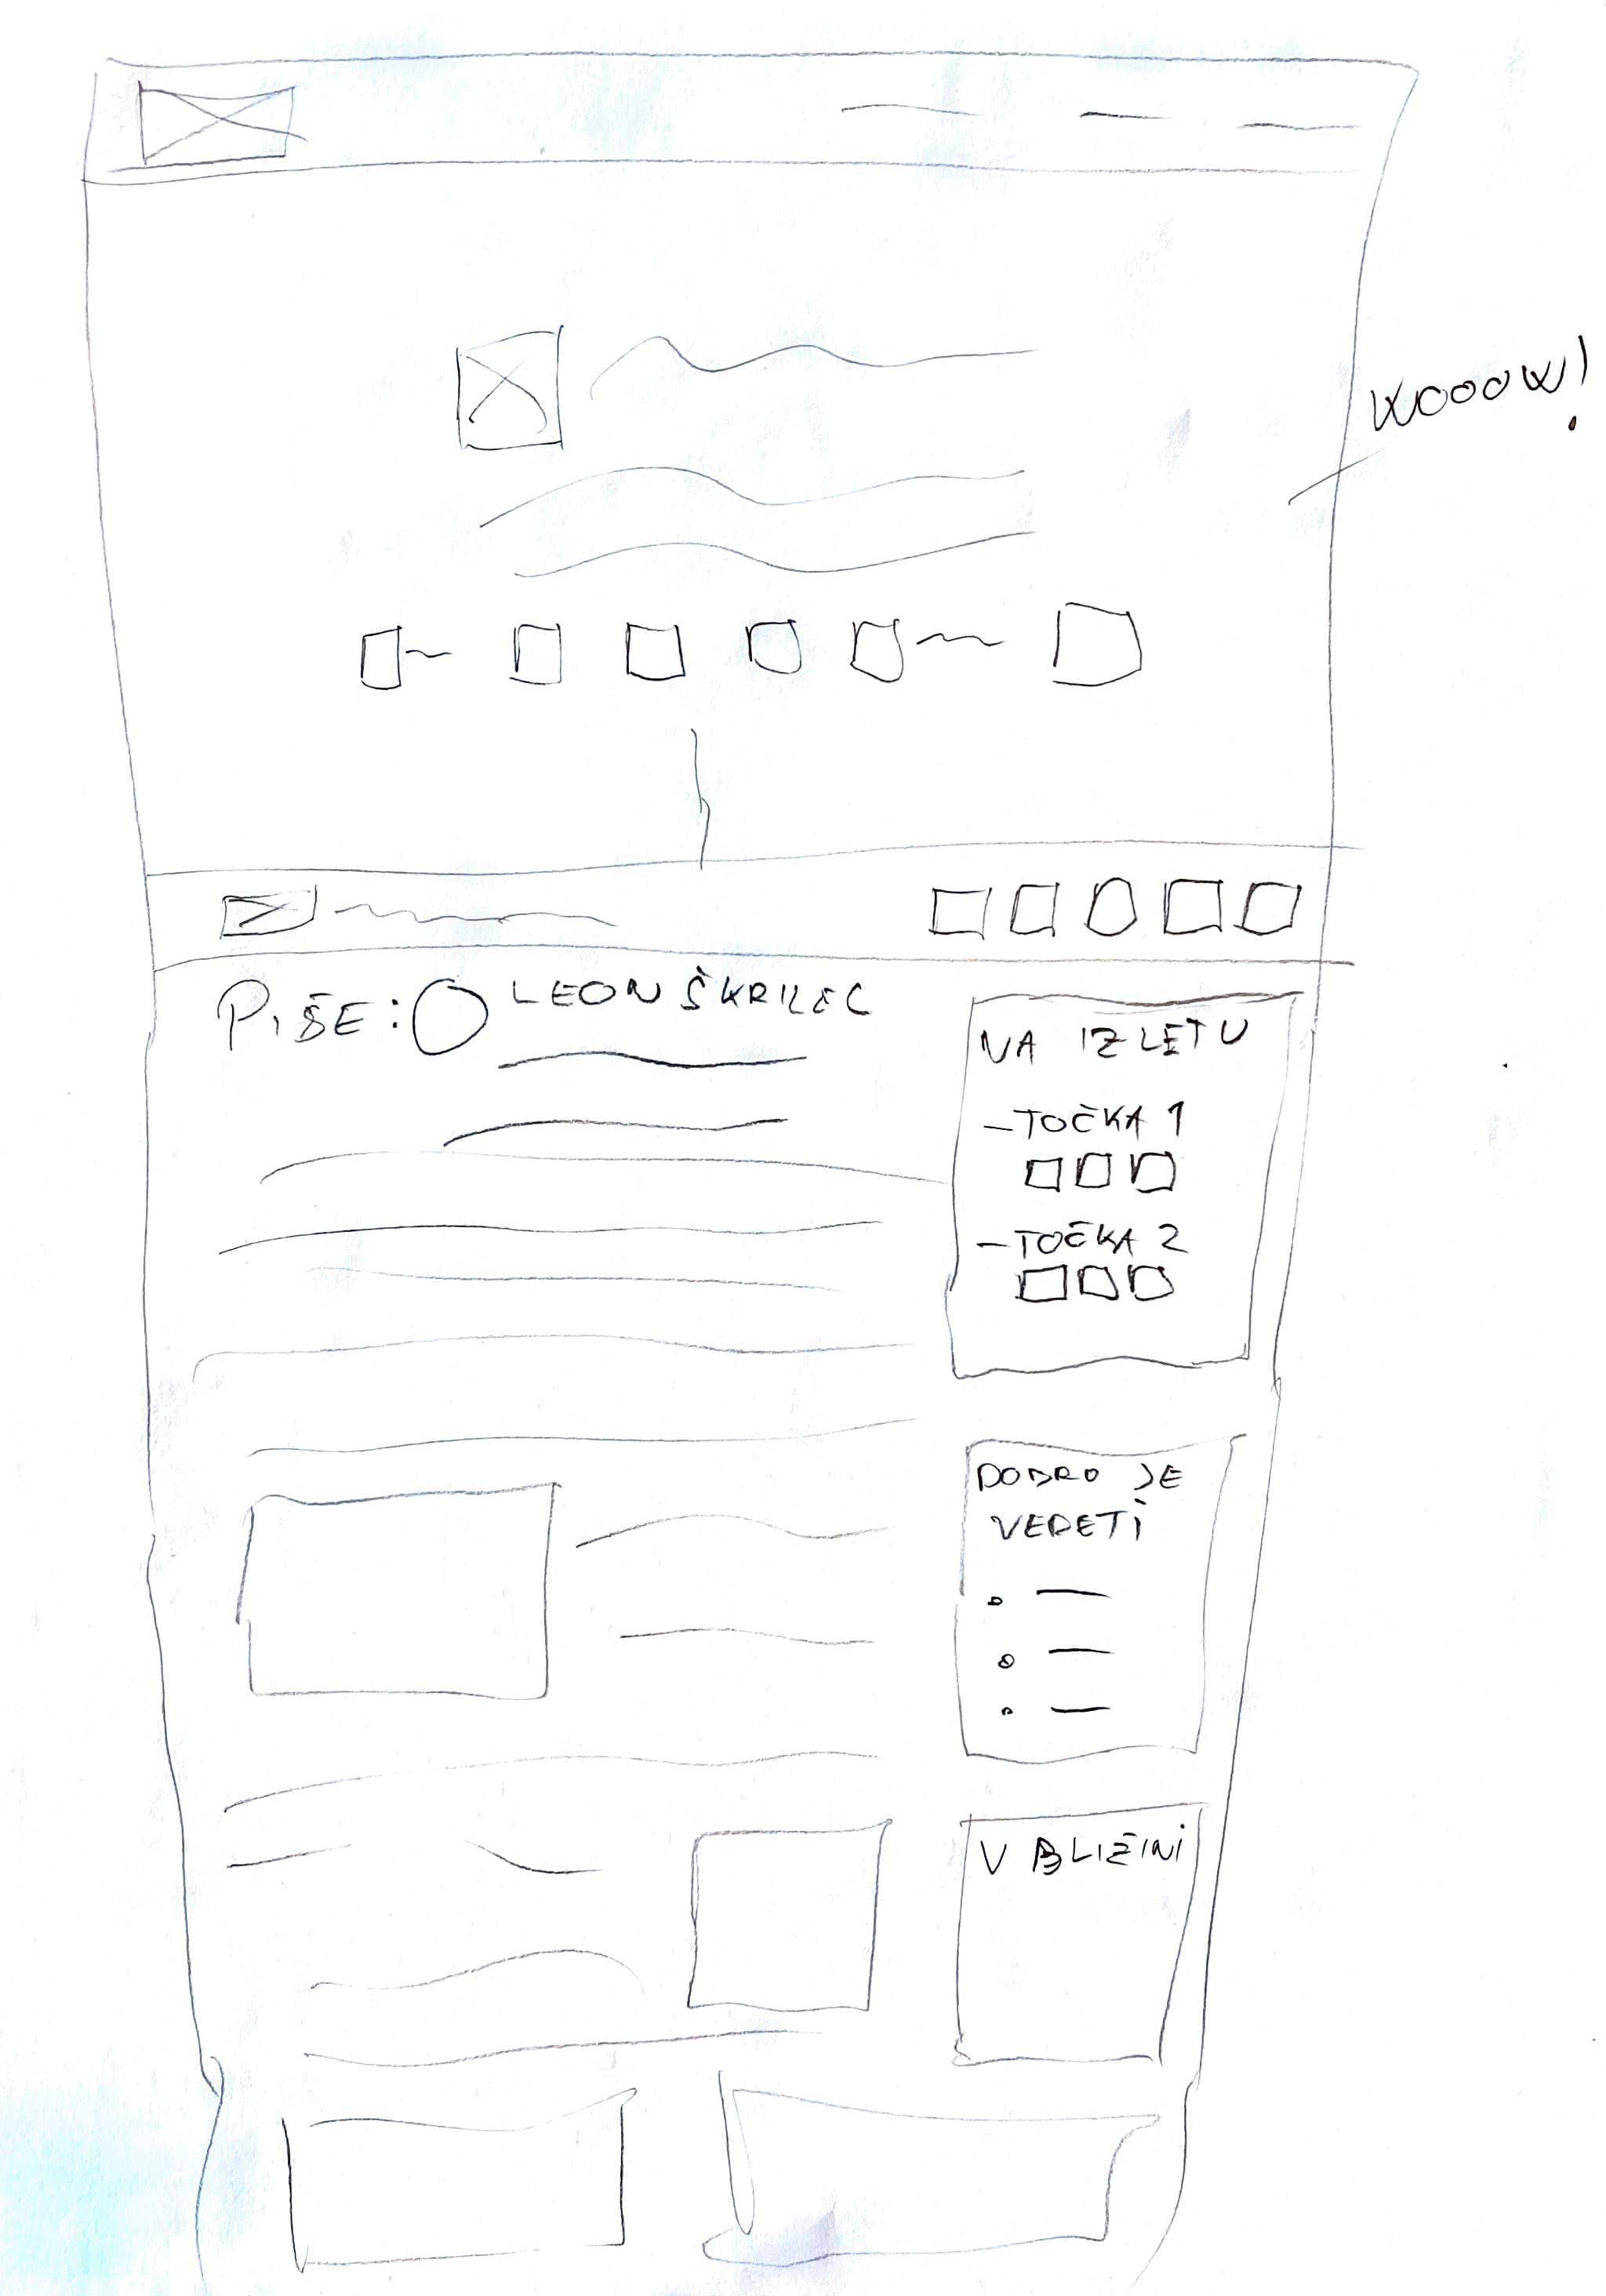 WOOOW!
PIŠE: LEON ŠKRILEC
NA IZLETU
- TOČKA 1
- TOČKA 2
DOBRO JE
VEDETI
V BLIŽINI